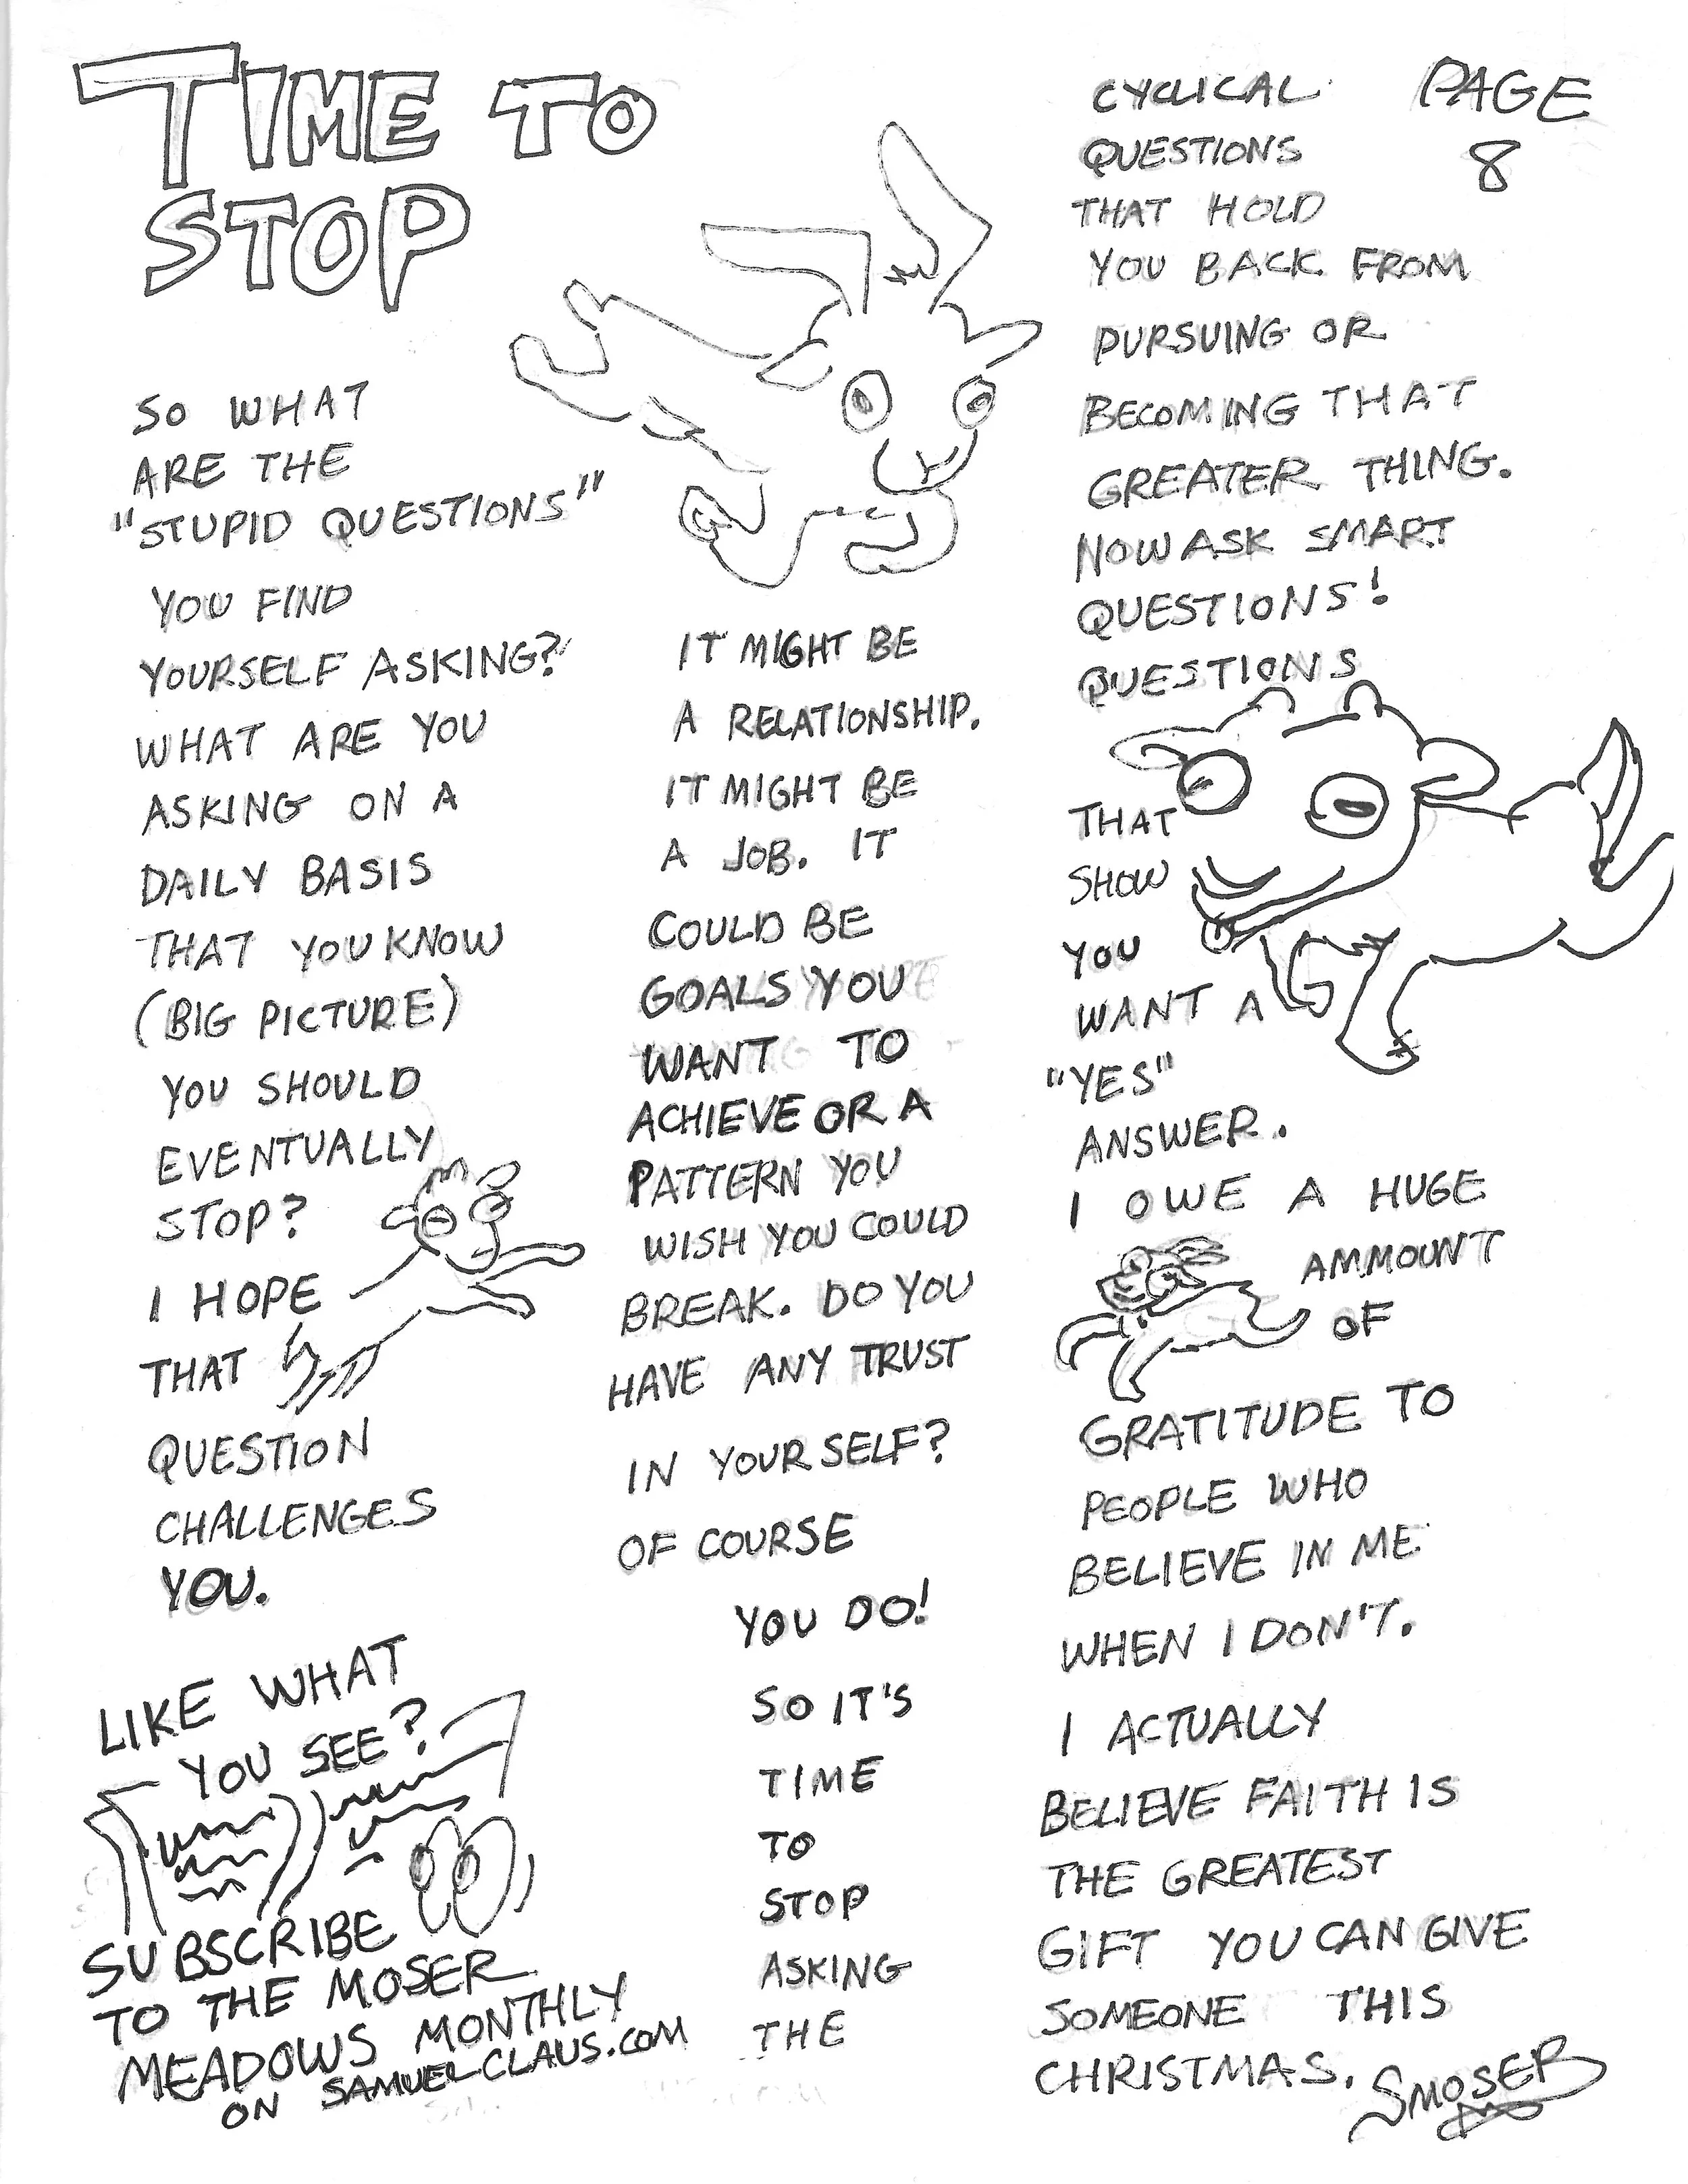 TIME TO
STOP
SO WHAT
ARE THE
"STUPID QUESTIONS"
YOU FIND
YOURSELF ASKING?
WHAT ARE YOU
ASKING ON A
DAILY BASIS
THAT YOU KNOW
(BIG PICTURE)
YOU SHOULD
EVENTUALLY
STOP?
I HOPE
THAT
QUESTION
CHALLENGES
YOU.
LIKE WHAT
YOU SEE?
SUBSCRIBE
TO THE MOSER
MEADOWS MONTHLY
ON SAMUELCLAUS.COM
IT MIGHT BE
A RELATIONSHIP.
IT MIGHT BE
A JOB. IT
COULD BE
GOALS YOU
WANT TO
ACHIEVE OR A
PATTERN YOU
WISH YOU COULD
BREAK. DO YOU
HAVE ANY TRUST
IN YOURSELF?
OF COURSE
YOU DO!
SO IT'S
TIME
TO
STOP
ASKING
THE
PAGE
8
CYCLICAL
QUESTIONS
THAT HOLD
YOU BACK FROM
PURSUING OR
BECOMING THAT
GREATER THING.
NOW ASK SMART
QUESTIONS!
QUESTIONS
THAT
SHOW
YOU
WANT A
"YES"
ANSWER.
I OWE A HUGE
AMMOUNT
OF
GRATITUDE TO
PEOPLE WHO
BELIEVE IN ME
WHEN I DON'T.
I ACTUALLY
BELIEVE FAITH IS
THE GREATEST
GIFT YOU CAN GIVE
SOMEONE THIS
CHRISTMAS.
SMOSER